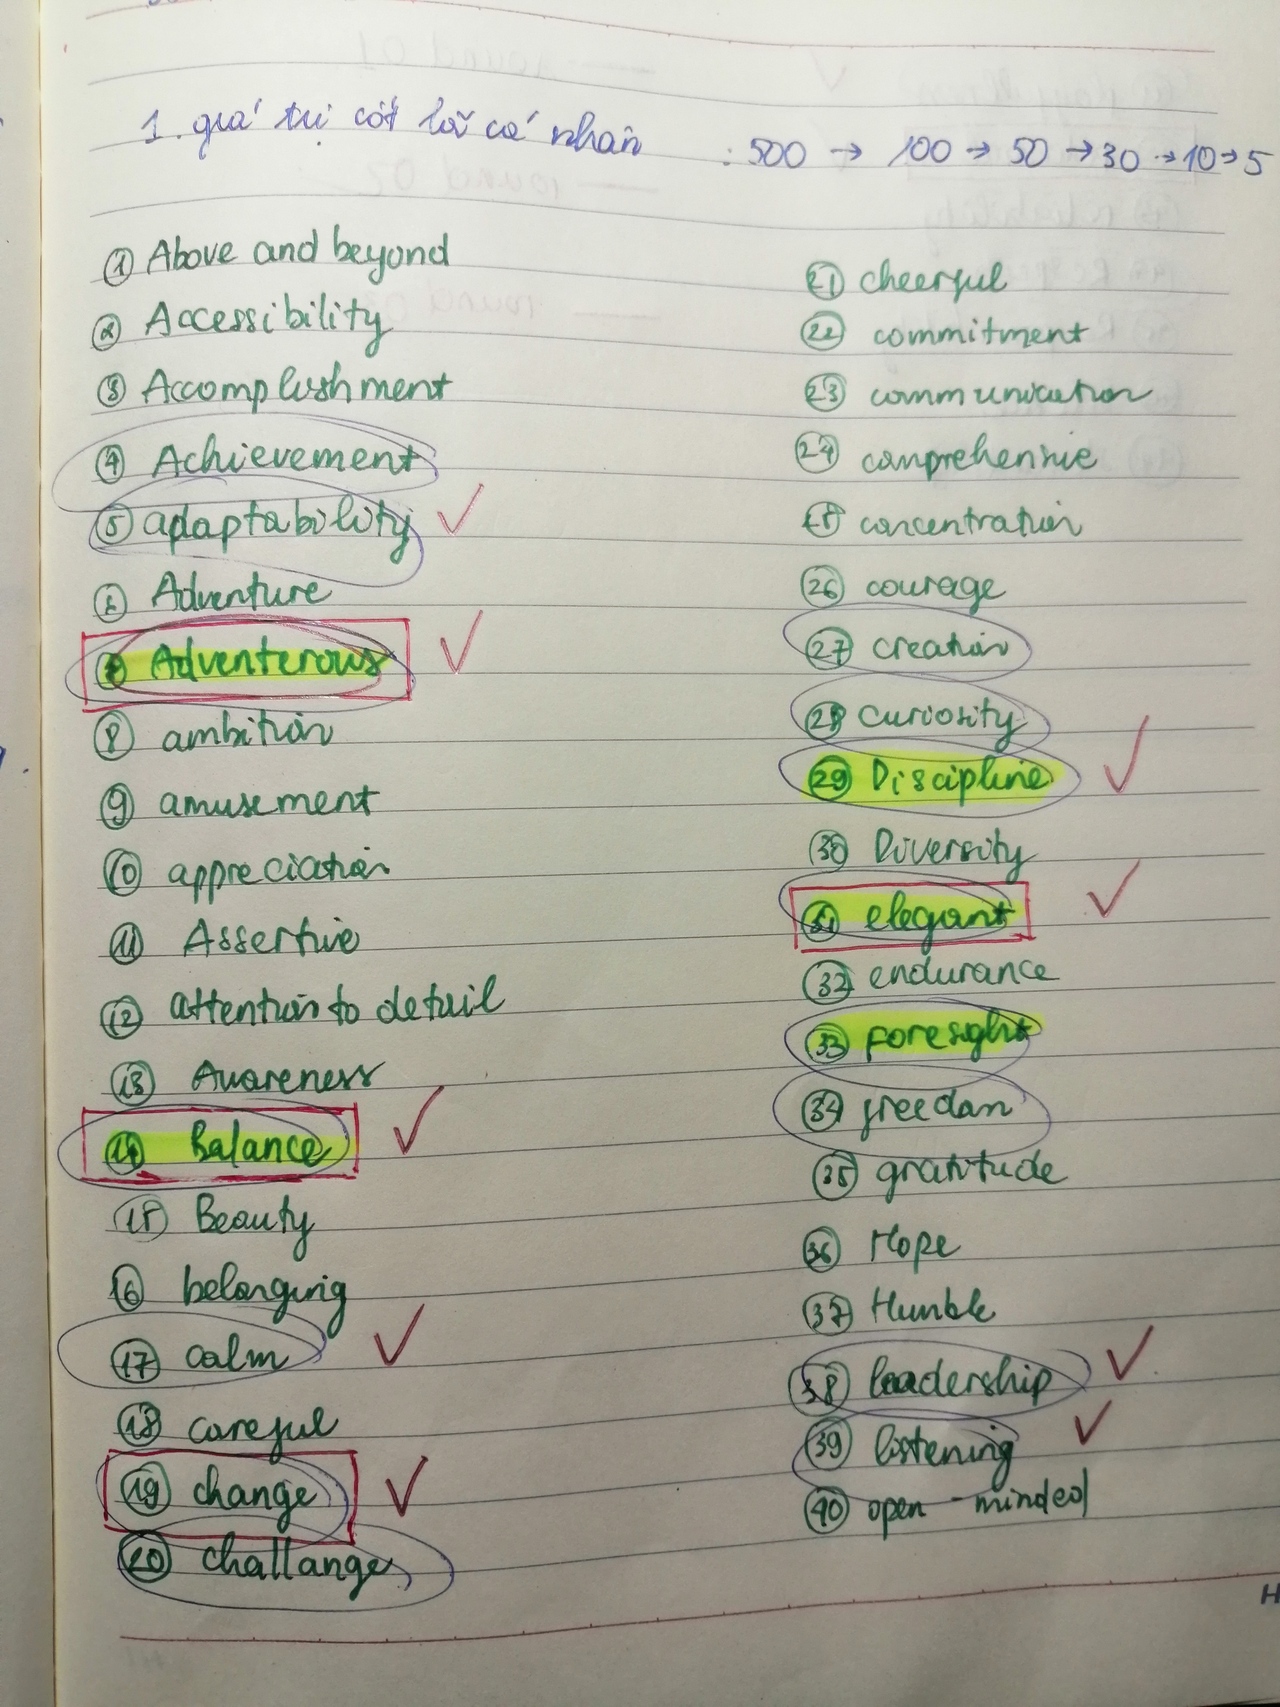 1. giá trị cốt lõi cá nhân : 500 → 100 → 50 → 30 → 10 → 5
① Above and beyond
② Accessibility
③ Accomplishment
④ Achievement
⑤ adaptability ✓
⑥ Adventure
⑦ Adventerous ✓
⑧ ambition
⑨ amusement
⑩ appreciation
⑪ Assertive
⑫ attention to detail
⑬ Awareness
⑭ Balance ✓
⑮ Beauty
⑯ belonging
⑰ calm ✓
⑱ careful
⑲ change ✓
⑳ challange
㉑ cheerful
㉒ commitment
㉓ communication
㉔ comprehensive
㉕ concentration
㉖ courage
㉗ creation
㉘ curiosity
㉙ Discipline ✓
㉚ Diversity
㉛ elegant ✓
㉜ endurance
㉝ foresight
㉞ freedom
㉟ gratitude
㊱ Hope
㊲ Humble
㊳ leadership ✓
㊴ listening ✓
㊵ open - minded
H